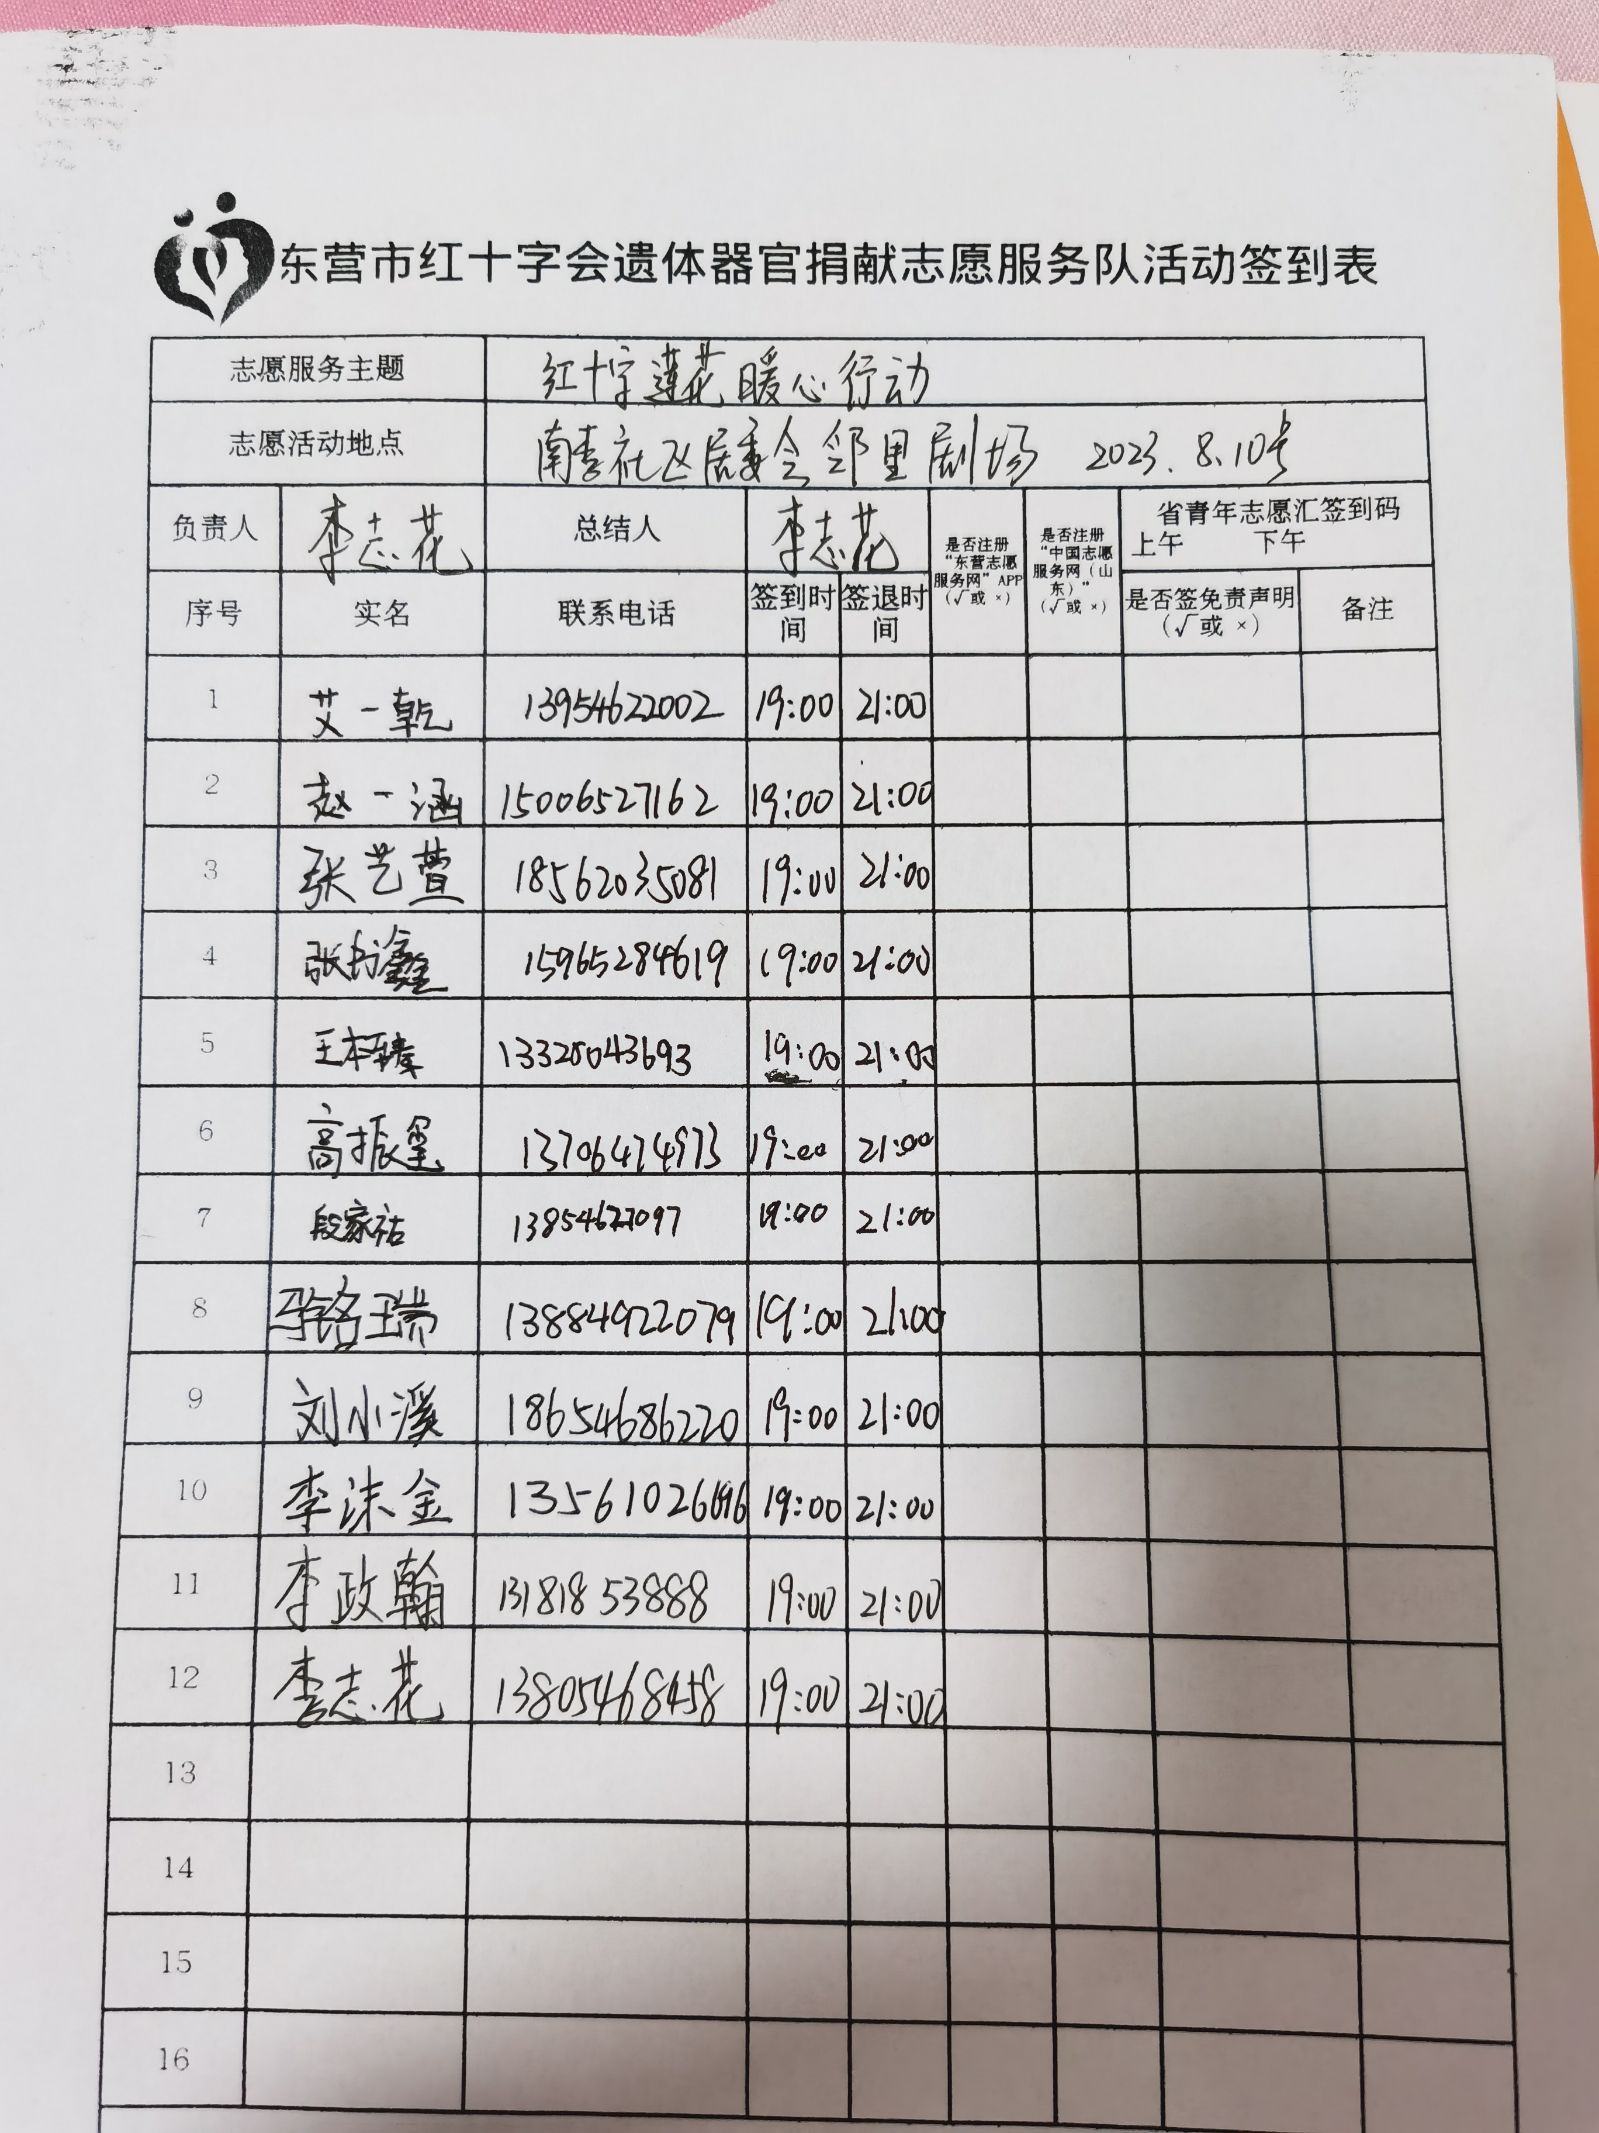 东营市红十字会遗体器官捐献志愿服务队活动签到表
志愿服务主题 红十字莲花暖心行动
志愿活动地点 南李社区居委会邻里剧场 2023.8.10号
负责人 李志花 总结人 李志花 是否注册“东营志愿服务网”APP（√或×） 是否注册“中国志愿服务网（山东）”（√或×） 省青年志愿汇签到码 上午 下午
序号 实名 联系电话 签到时间 签退时间 是否签免责声明（√或×） 备注
1 艾一乾 13954622002 19:00 21:00
2 赵一涵 15006527162 19:00 21:00
3 张艺萱 18562035081 19:00 21:00
4 张书鑫 15965284619 19:00 21:00
5 王本臻 13320043693 19:00 21:00
6 高振玺 13706474973 19:00 21:00
7 段家祜 13854622097 19:00 21:00
8 马铭瑞 13884922079 19:00 21:00
9 刘小溪 18654686220 19:00 21:00
10 李沫金 19:00 21:00
11 李政翰 13181853888 19:00 21:00
12 李志花 13805468458 19:00 21:00
13
14
15
16